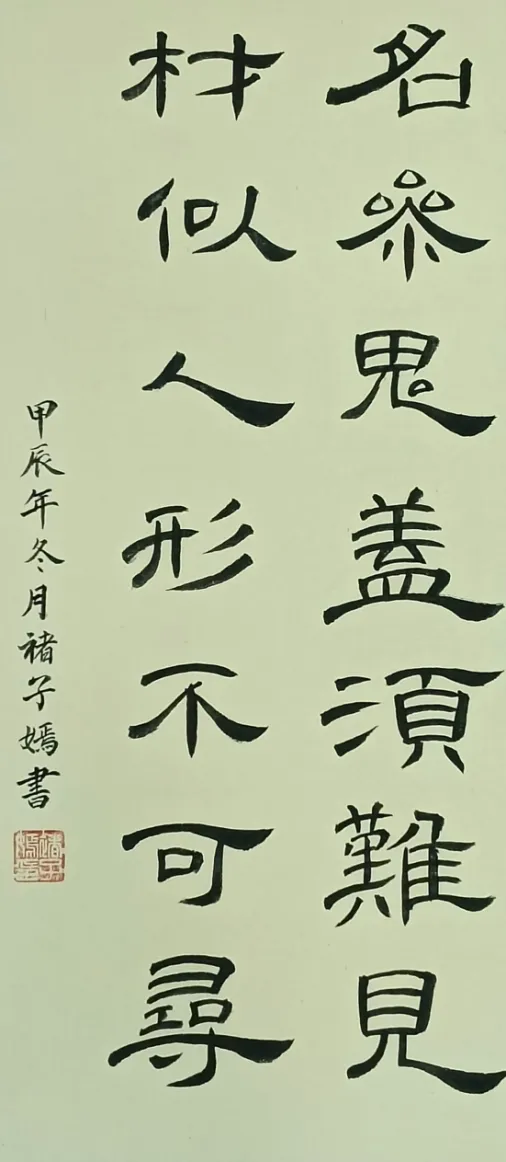 名參鬼蓋須難見
材似人形不可尋
甲辰年冬月褚子嫣書